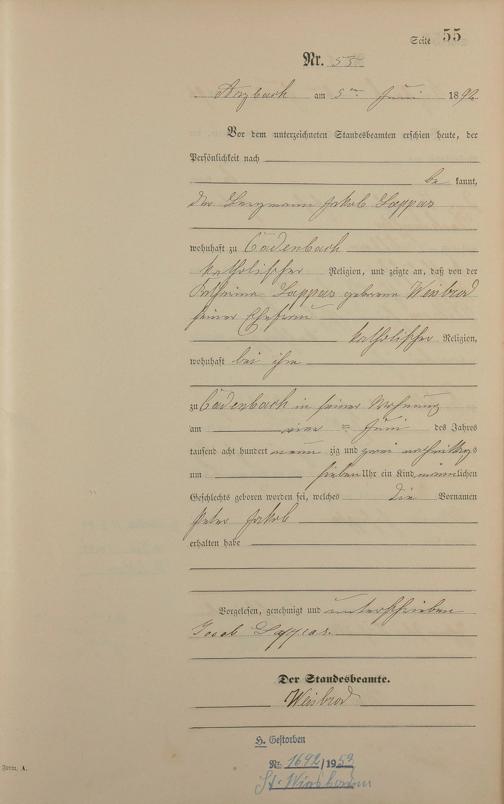 Seite 55
Nr. 53
Arzbach am 5ten Juni 1892
Vor dem unterzeichneten Standesbeamten erschien heute, der
Persönlichkeit nach
be kannt,
der Bergmann Jakob Lappas
wohnhaft zu Cadenbach
katholischer Religion, und zeigte an, daß von der
Katharina Lappas geborene Weisbrod
seiner Ehefrau
katholischer Religion,
wohnhaft bei ihm
zu Cadenbach in seiner Wohnung
am vier ten Juni des Jahres
tausend acht hundert neun zig und zwei nachmittags
um sieben Uhr ein Kind männlichen
Geschlechts geboren worden sei, welches die Vornamen
Peter Jakob
erhalten habe
Vorgelesen, genehmigt und unterschrieben
Jacob Lappas.
Der Standesbeamte.
Weisbrod
H. Gestorben
Nr. 1692/1959
Form. A.